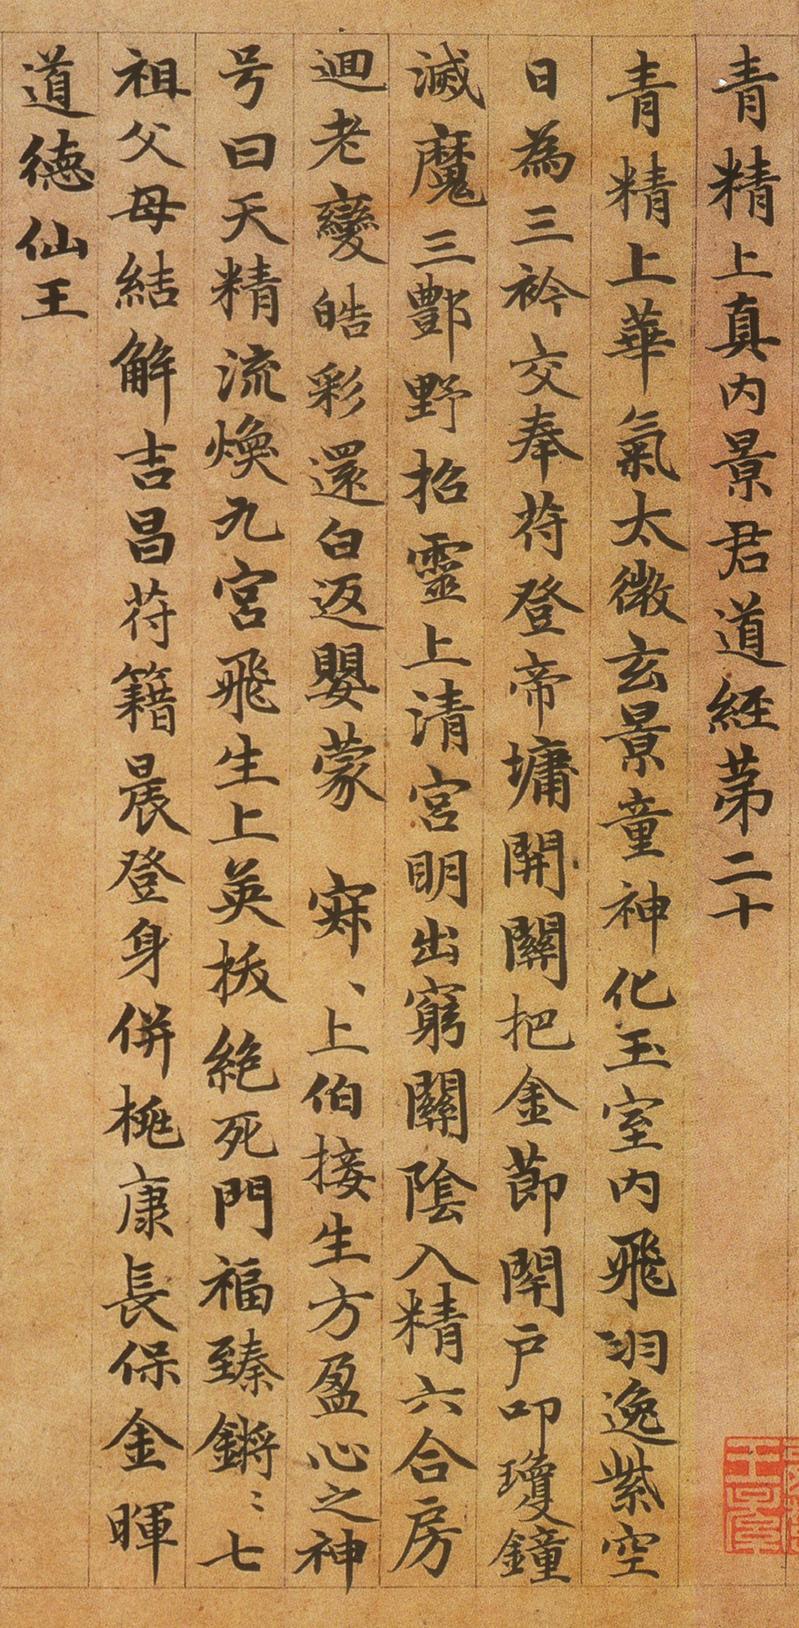 青精上真內景君道經苐二十
青精上華氣太微玄景童神化玉室內飛羽逸紫空
日為三衿交奉苻登帝墉開關把金節閞戶叩瓊鐘
滅魔三酆野招靈上清宮明出窮關隂入精六合房
迴老變皓彩還白返嬰蒙 寂、上伯接生方盈心之神
号曰天精流煥九宮飛生上英拔絕死門福臻鏘〻七
祖父母結解吉昌苻籍晨登身併桃康長保金暉
道德仙王